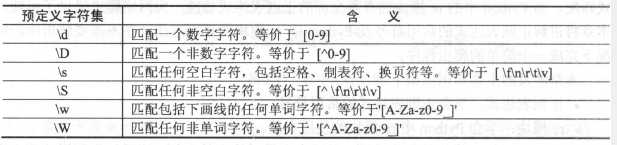 预定义字符集 含 义
\d 匹配一个数字字符。等价于 [0-9]
\D 匹配一个非数字字符。等价于 [^0-9]
\s 匹配任何空白字符，包括空格、制表符、换页符等。等价于 [ \f\n\r\t\v]
\S 匹配任何非空白字符。等价于 [^ \f\n\r\t\v]
\w 匹配包括下画线的任何单词字符。等价于'[A-Za-z0-9_]'
\W 匹配任何非单词字符。等价于 '[^A-Za-z0-9_]'